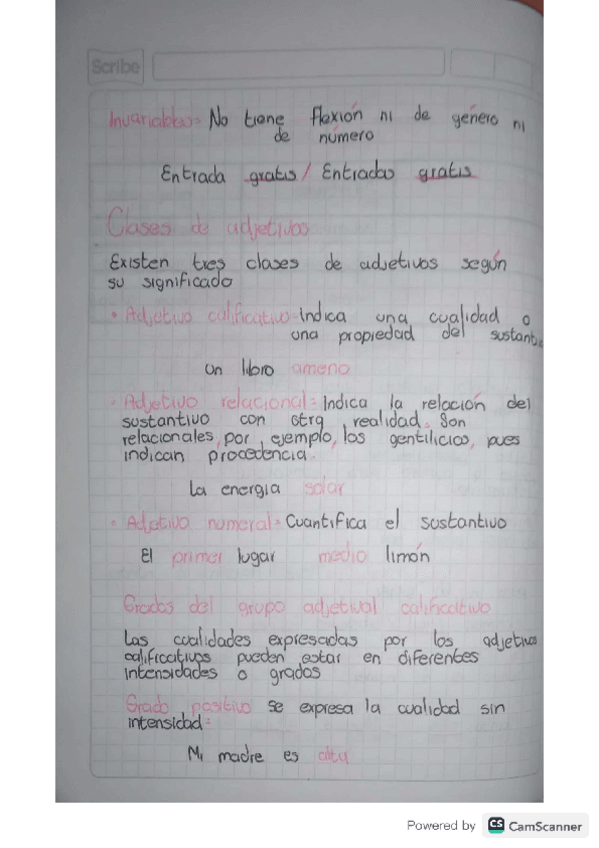 Scribe
Invariables= No tiene flexión ni de género ni
de número
Entrada gratis / Entradas gratis
Clases de adjetivos
Existen tres clases de adjetivos según
su significado
• Adjetivo calificativo= Indica una cualidad o
una propiedad del sustant
un libro ameno
• Adjetivo relacional= Indica la relación del
sustantivo con otra realidad. Son
relacionales, por ejemplo, los gentilicios, pues
indican procedencia.
La energia solar
• Adjetivo numeral= Cuantifica el sustantivo
El primer lugar medio limón
Grados del grupo adjetival calificativo
Las cualidades expresadas por los adjetivos
calificativos pueden estar en diferentes
intensidades o grados
Grado positivo se expresa la cualidad sin
intensidad=
Mi madre es alta
Powered by CS CamScanner